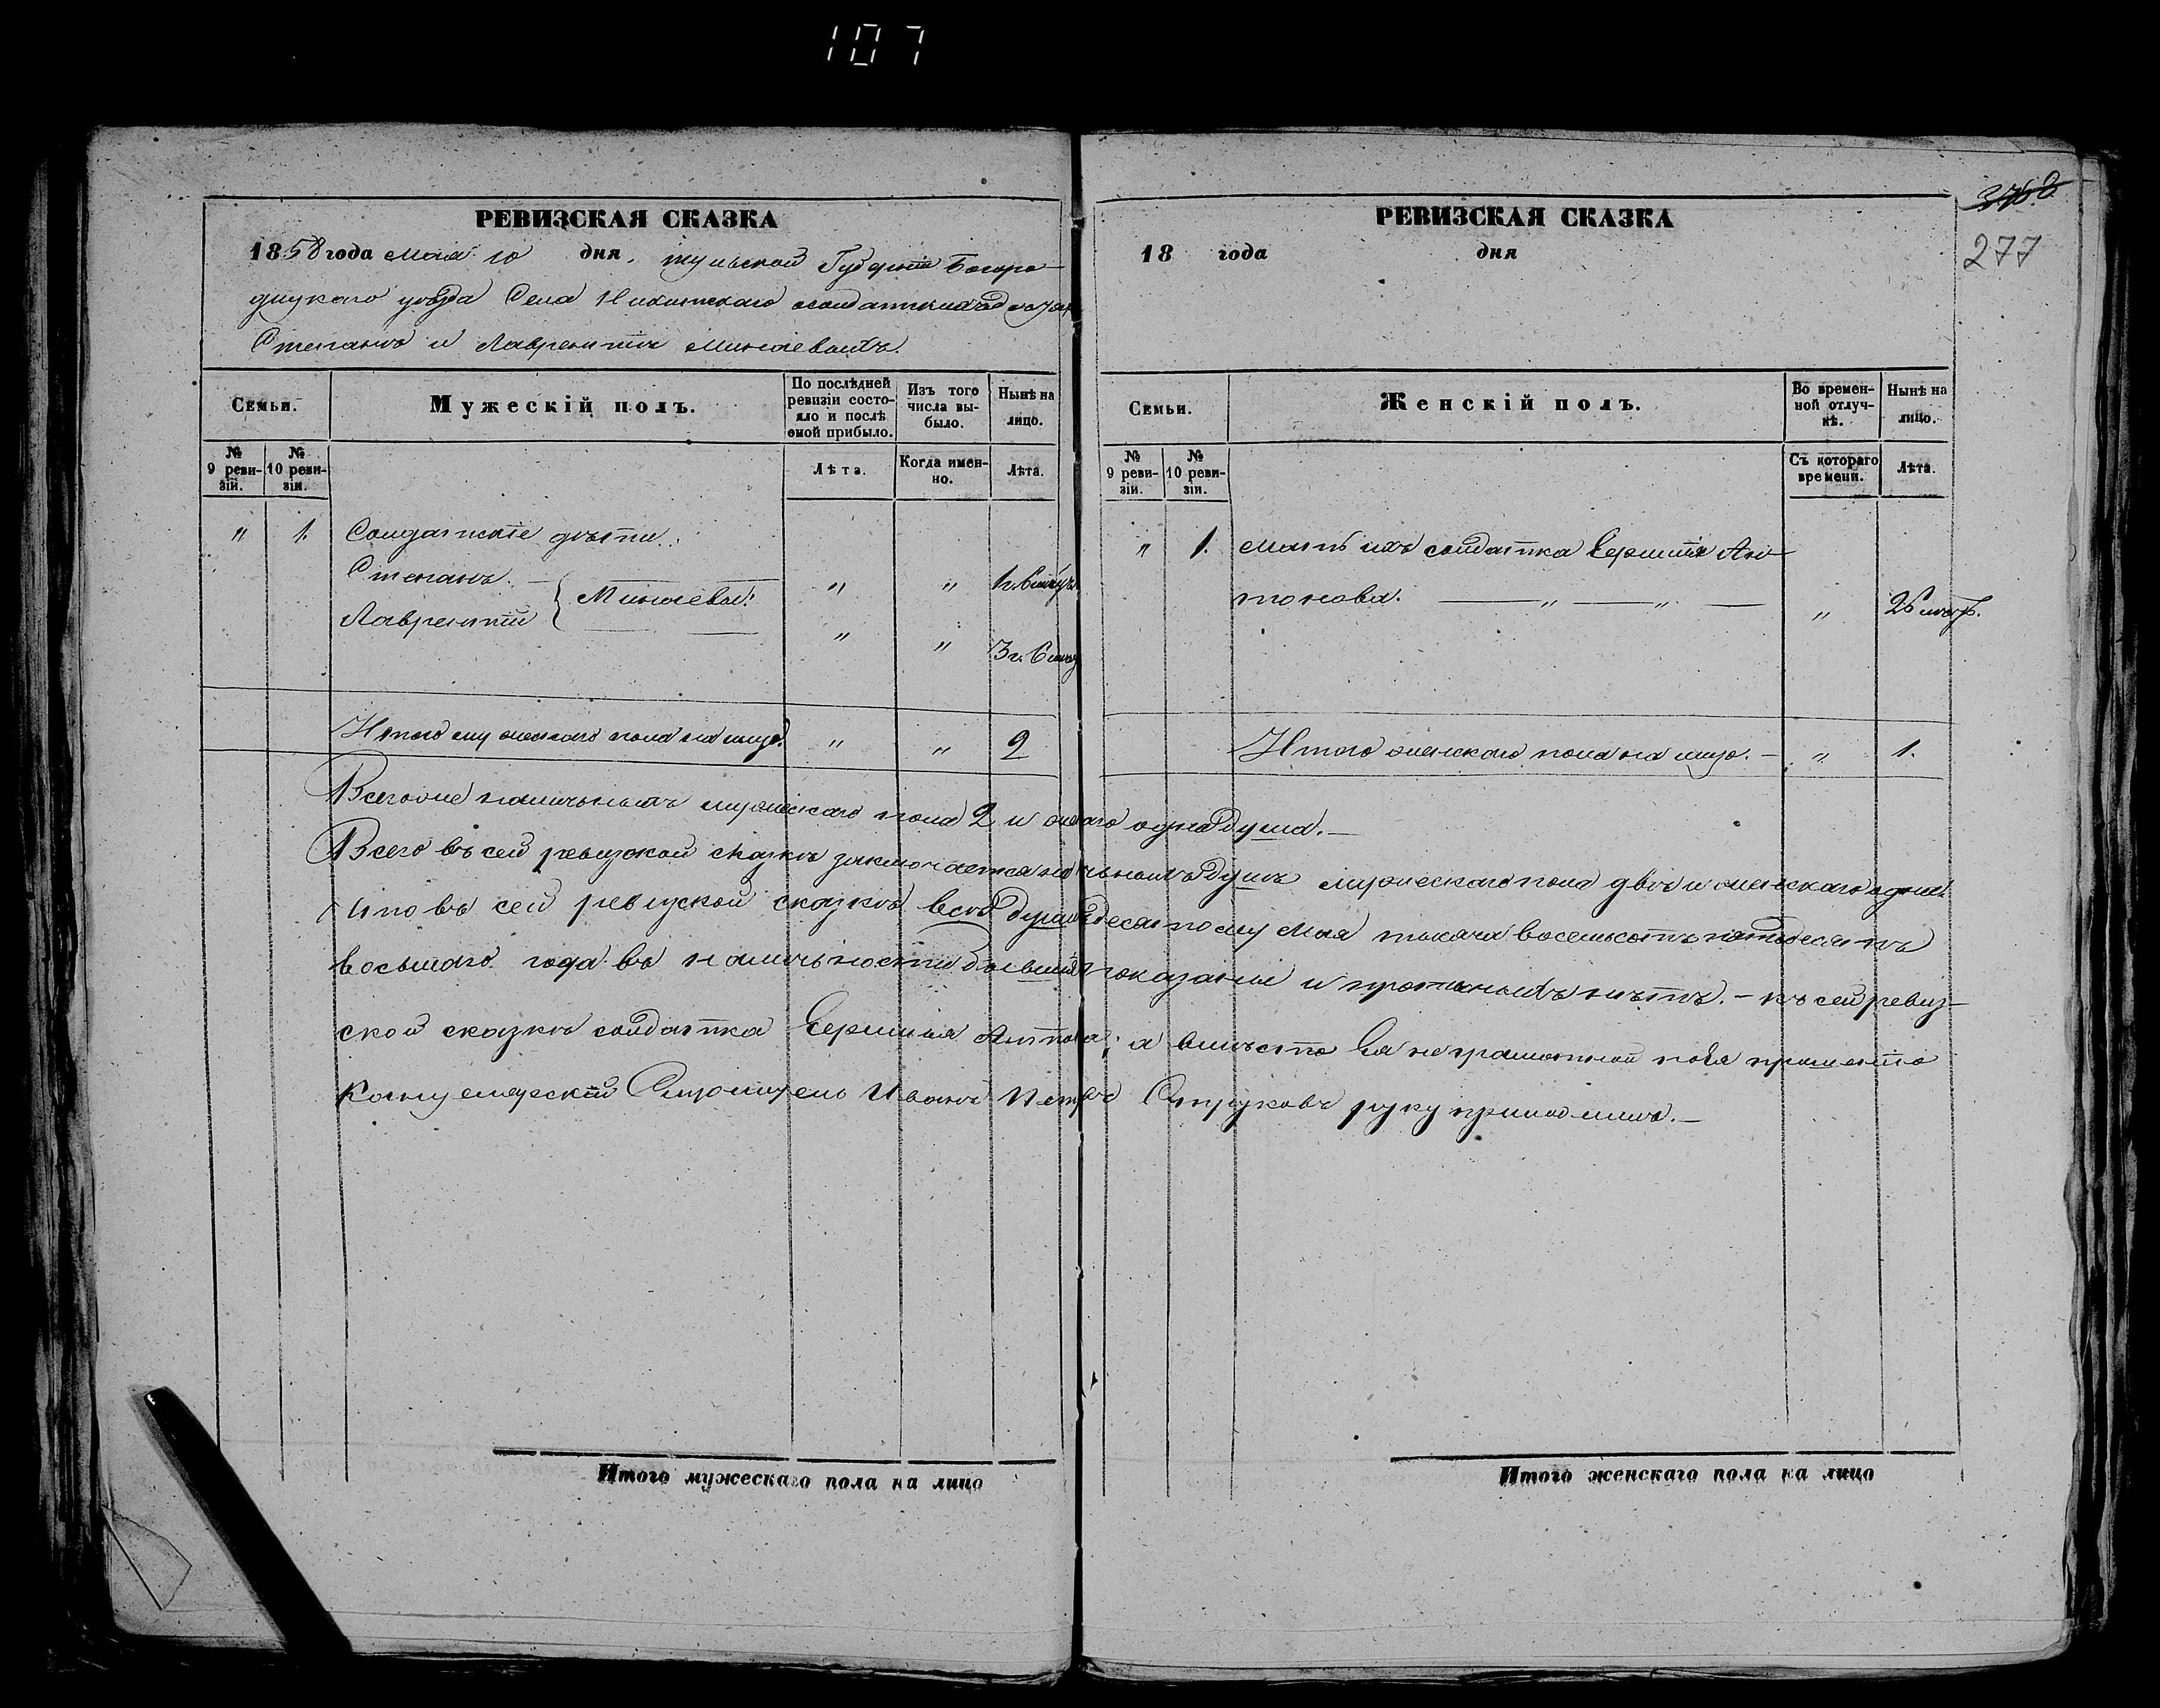 107
РЕВИЗСКАЯ СКАЗКА
1858 года Мая 10 дня, Тульской Губерніи Богоро-
дицкаго уѣзда Села Никитскаго о солдатскихъ дѣтяхъ
Степанѣ и Лаврентіѣ Минаевыхъ.
Семьи.
Мужескій полъ.
По послѣдней ревизіи состояло и послѣ оной прибыло.
Изъ того числа выбыло.
Нынѣ на лицо.
№ 9 ревизіи.
№ 10 ревизіи.
Лѣта.
Когда именно.
Лѣта.
" 1. Солдатскіе дѣти:
Степанъ. Минаевы: " " 1 г. 6 мѣс
Лаврентій " " 3 г. 6 мѣс
Итого мужескаго пола на лицо. " " 2
РЕВИЗСКАЯ СКАЗКА
18 года дня
3762
277
Семьи.
Женскій полъ.
Во временной отлучкѣ.
Нынѣ на лицо.
№ 9 ревизіи.
№ 10 ревизіи.
Съ котораго времени.
Лѣта.
" 1. Мать ихъ солдатка Ефимія Ан-
тонова. " " " 25
Итого женскаго пола на лицо. - " 1.
наличныхъ мужескаго пола 2 и одна душа.-
Всего въ сей ревизской сказкѣ заключается наличныхъ душъ мужескаго пола двѣ и женскаго одна
Что въ сей ревизской сказкѣ всѣ души къ десятому Мая тысяча восемьсотъ пятьдесятъ
восьмаго года въ наличности бывшія показаны и прописныхъ нѣтъ.- къ сей ревиз-
ской сказкѣ солдатка Ефимія Антонова, а вмѣсто ея неграмотной по ея прошенію
Канцелярскій Служитель Иванъ Петровъ Струковъ руку приложилъ.-
Итого мужескаго пола на лицо
Итого женскаго пола на лицо